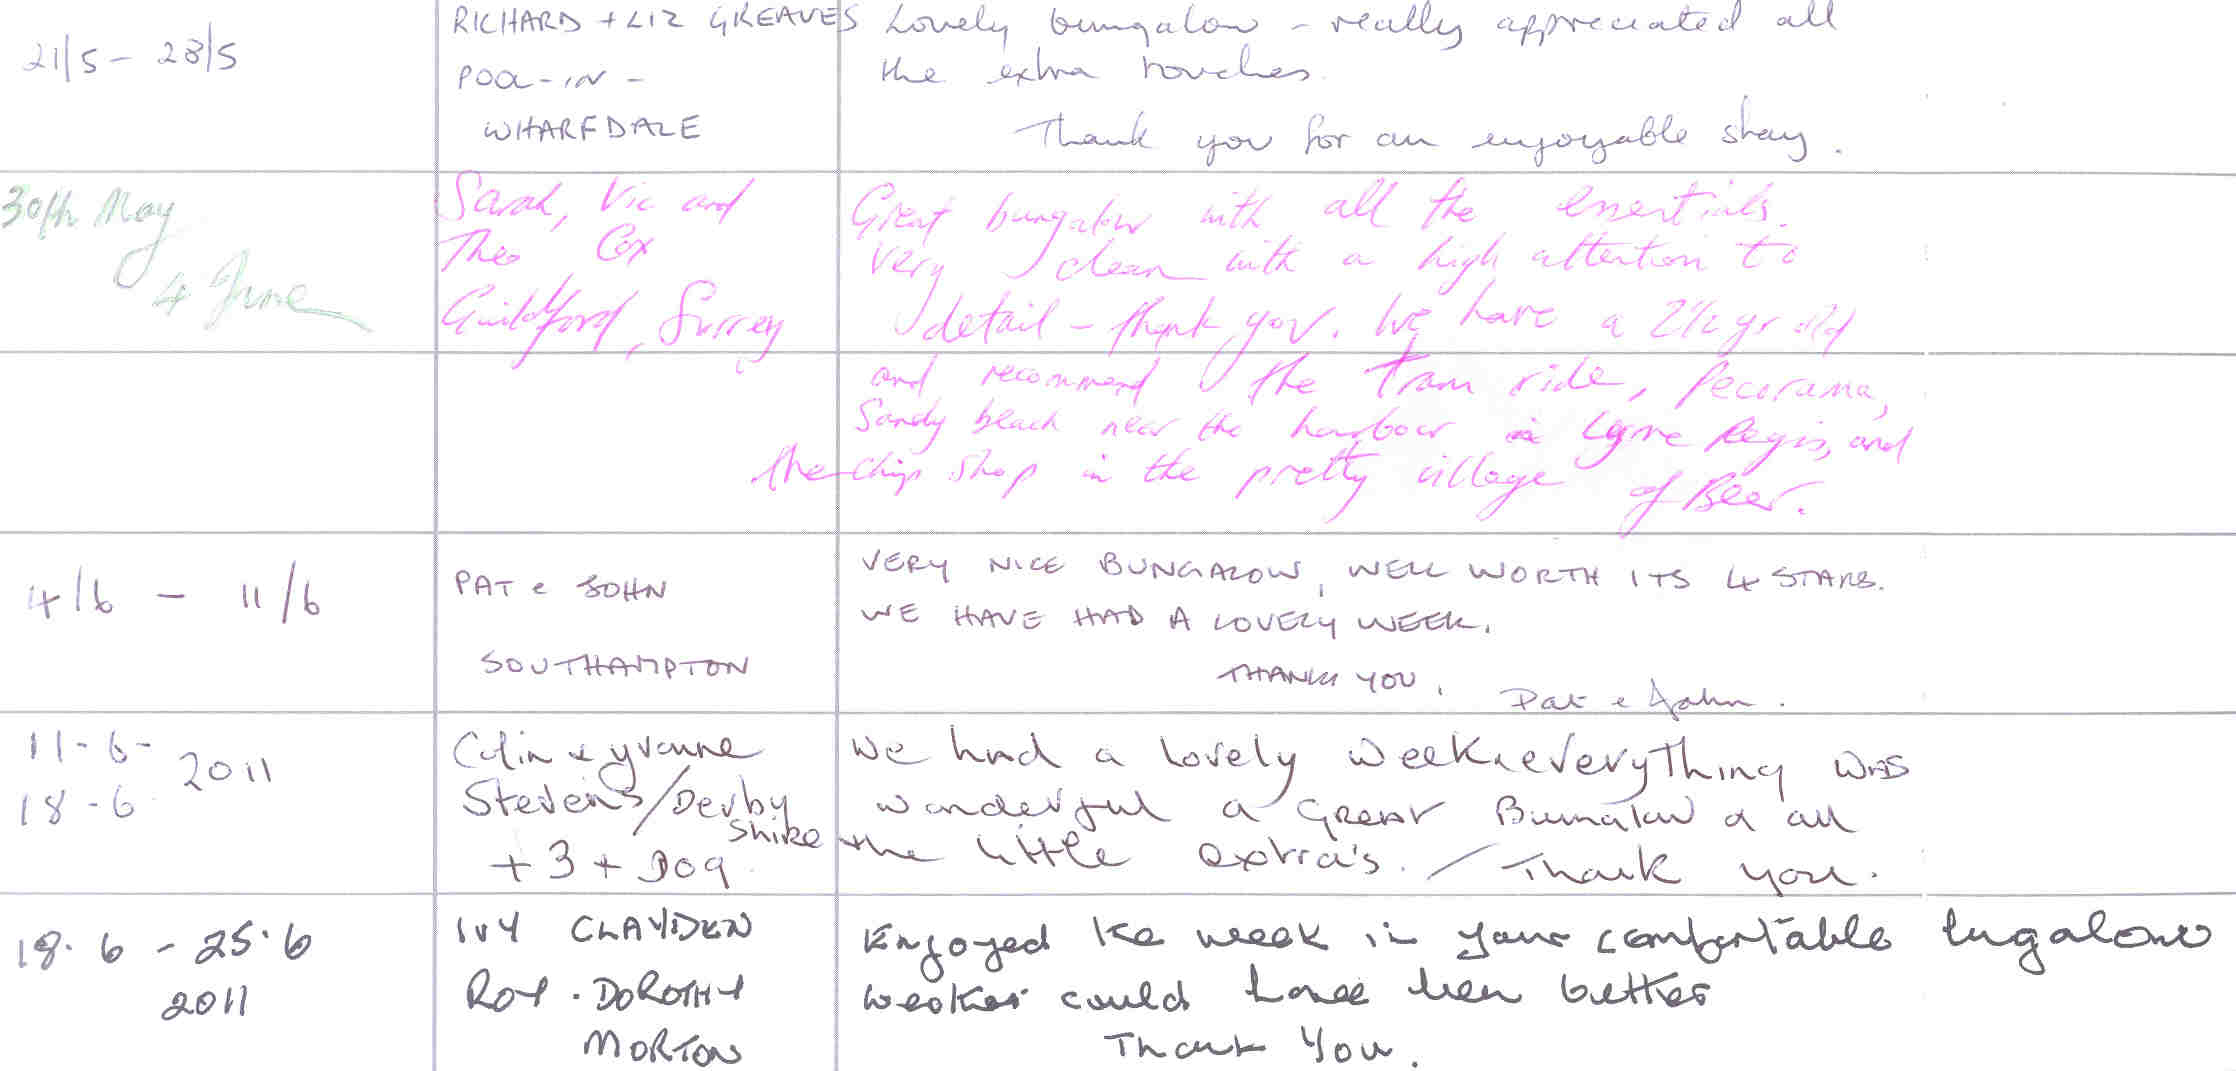 21/5 - 28/5
RICHARD + LIZ GREAVES
POOL-IN-
WHARFDALE
Lovely bungalow - really appreciated all
the extra touches.
Thank you for an enjoyable stay.
30th May
4 June
Sarah, Vic and
Theo Cox
Guildford, Surrey
Great bungalow with all the essentials.
Very clean with a high attention to
detail - thank you. We have a 2½ yr old
and recommend the tram ride, Pecorama,
Sandy beach near the harbour in Lyme Regis, and
the chip shop in the pretty village of Beer.
4/6 - 11/6
PAT & JOHN
SOUTHAMPTON
VERY NICE BUNGALOW, WELL WORTH ITS 4 STARS.
WE HAVE HAD A LOVELY WEEK.
THANK YOU.
Pat & John.
11-6-
18-6
2011
Colin & yvonne
Stevens/Derby
Shire
+ 3 + Dog.
We had a lovely week & everything was
wonderful a Great Bumalow & all
the little extra's. / Thank you.
18.6 - 25.6
2011
IVY CLAYDEN
ROY. DOROTHY
MORTON
Enjoyed the week in your comfortable bugalow
weather could have been better
Thank You.